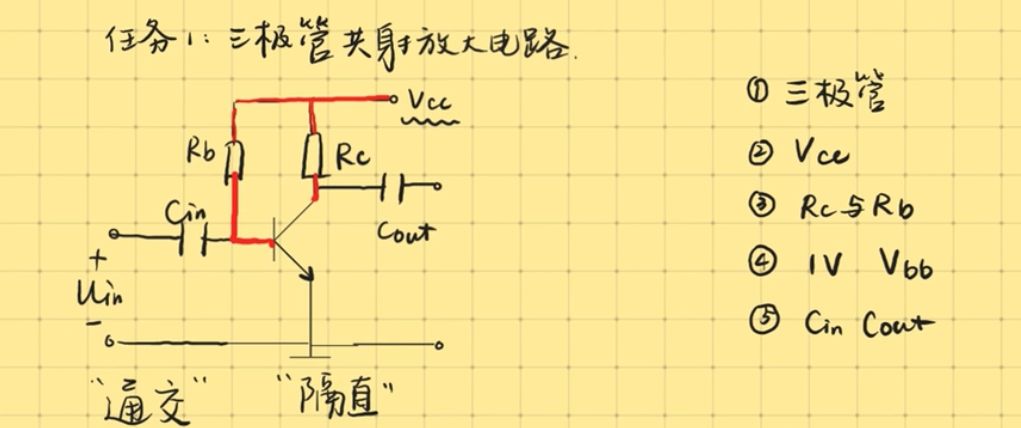 任务1:三极管共射放大电路.
Vcc
Rb
Rc
Cin
Cout
+
Uin
-
"通交" "隔直"
① 三极管
② Vcc
③ Rc与Rb
④ 1V Vbb
⑤ Cin Cout